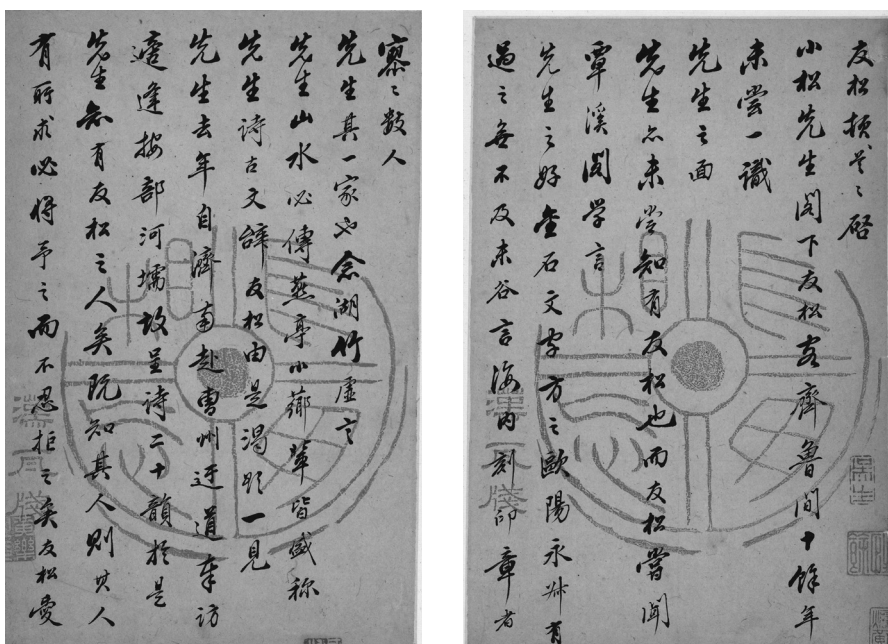 友松頓首:啓
小松先生閣下友松客齊魯間十餘年
未嘗一識
先生之面
先生亦未嘗知有友松也而友松嘗聞
覃溪閣學言
先生之好金石文字方之歐陽永叔有
過之無不及未谷言海内刻印章者
寥:數人
先生其一家也念湖竹虛言
先生山水必傳燕亭小薌輩皆盛稱
先生詩古文辭友松由是渴欲一見
先生去年自濟南赴曹州迂道奉訪
適逢按部河壖故呈詩二十韻於是
先生知有友松之人矣既知其人則其人
有所求必將予之而不忍拒之矣友松愛